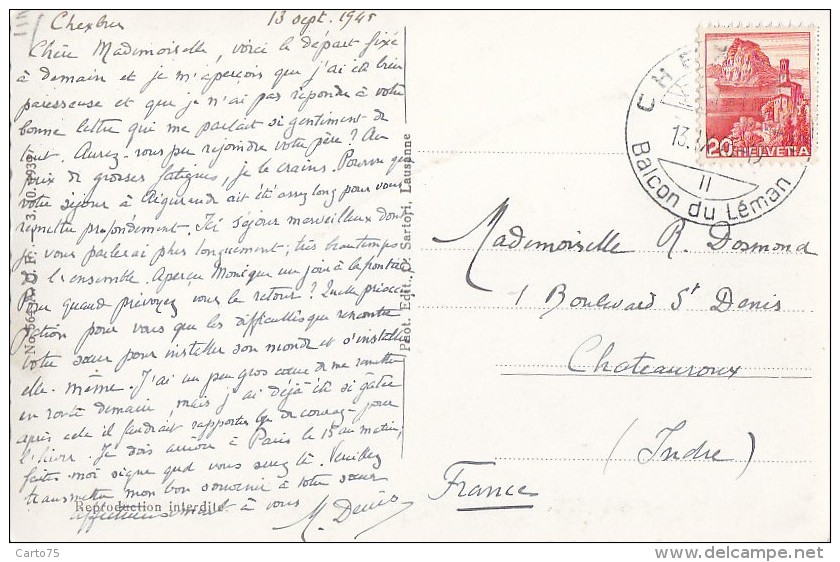 Chexbres 13 sept. 1945
Chère Mademoiselle, voici le départ fixé
à demain et je m'aperçois que j'ai été bien
paresseuse et que je n'ai pas répondu à votre
bonne lettre qui me parlait si gentiment de
tout. Aurez-vous pu rejoindre votre père? Au
prix de grosses fatigues, je le crains. Pourvu que
votre séjour à Aigurande ait été assez long pour vous
remettre profondément. Ici séjour merveilleux dont
je vous parlerai plus longuement; très beau temps
ds l'ensemble. Aperçu Monique un jour à la
Pour quand prévoyez vous le retour? Quelle préoccu-
pation pour vous que les difficultés que rencontre
votre sœur pour installer son monde et s'installer
elle-même. J'ai un peu gros cœur de me remettre
en route demain, mais j'ai déjà été si gâtée
après cela il faudrait rapporter du courage pour
l'hiver. Je dois arriver à Paris le 15 au matin;
faites moi signe qd vous serez là. Veuillez
transmettre mon bon souvenir à votre sœur
affectueusement à vous M. Denis
Reproduction interdite
Phot. Edit. O. Sartori, Lausanne
CHEXBRES
13.
II
Balcon du Léman
20 HELVETIA
Mademoiselle R. Dosmond
1 Boulevard St Denis
Chateauroux
(Indre)
France
Carto75
delcampe.net